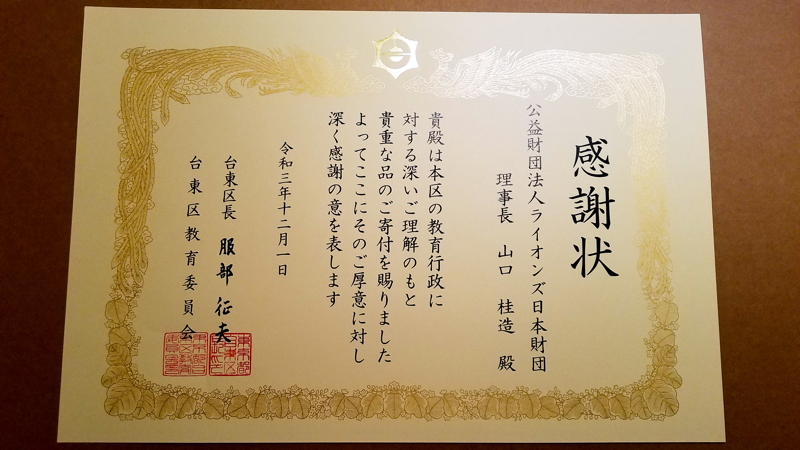 感謝状
公益財団法人ライオンズ日本財団
理事長 山口 桂造 殿
貴殿は本区の教育行政に
対する深いご理解のもと
貴重な品のご寄付を賜りました
よってここにそのご厚意に対し
深く感謝の意を表します
令和三年十二月一日
台東区長 服部 征夫
台東区教育委員会